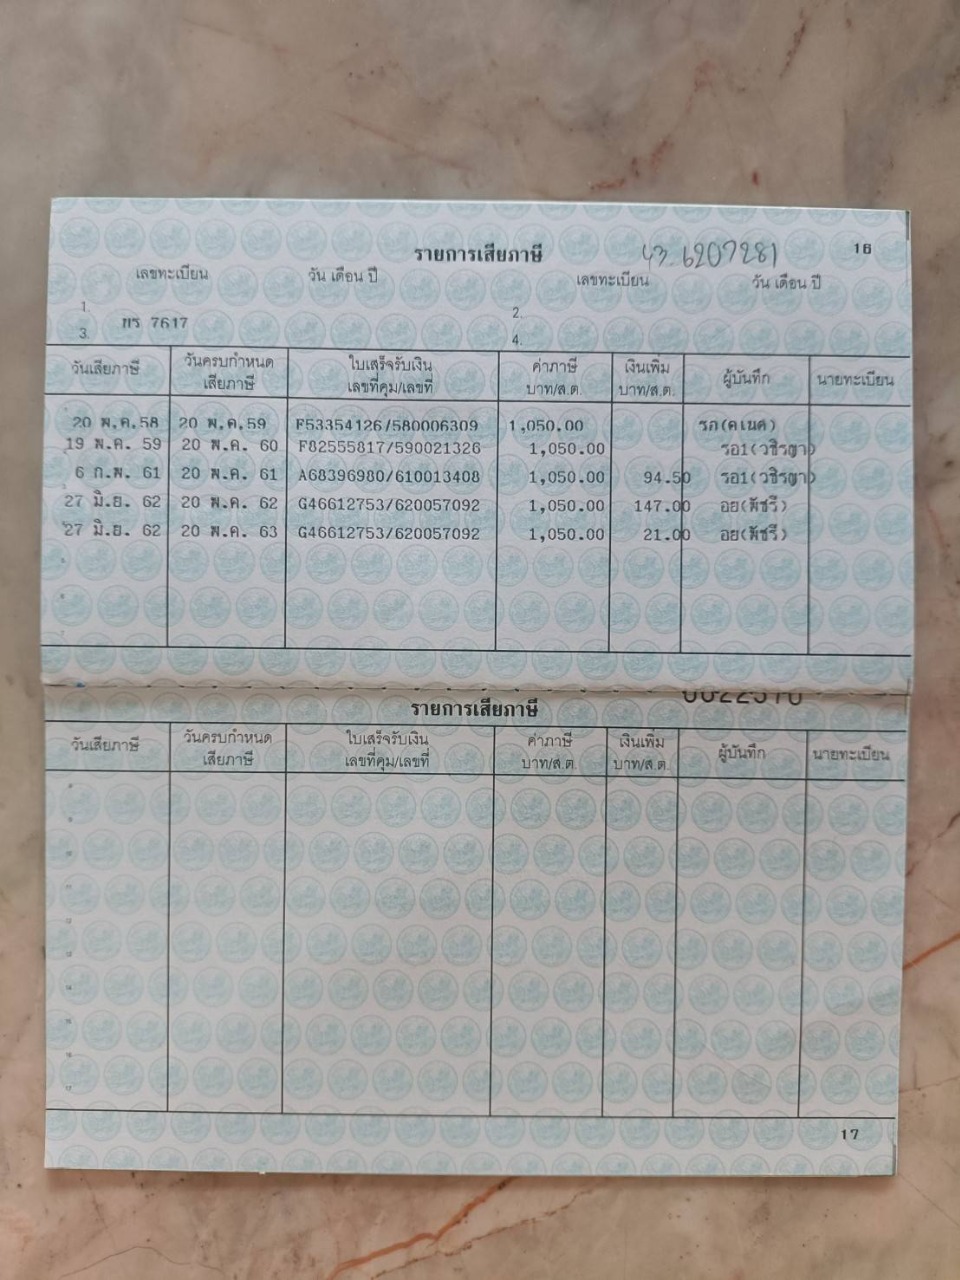 รายการเสียภาษี 6207281 16
เลขทะเบียน วัน เดือน ปี เลขทะเบียน วัน เดือน ปี
1. 2.
7617
3. 4.
วันเสียภาษี วันครบกำหนดเสียภาษี ใบเสร็จรับเงิน เลขที่คุม/เลขที่ ค่าภาษี บาท/ส.ต. เงินเพิ่ม บาท/ส.ต. ผู้บันทึก นายทะเบียน
20 พ.ค.58 20 พ.ค.59 F53354126/580006309 1,050.00 รภ(คเนศ)
19 พ.ค. 59 20 พ.ค. 60 F82555817/590021326 1,050.00 รอ1(วชิรญา)
6 ก.พ. 61 20 พ.ค. 61 A68396980/610013408 1,050.00 94.50 รอ1(วชิรญา)
27 มิ.ย. 62 20 พ.ค. 62 G46612753/620057092 1,050.00 147.00 อย(พัชรี)
27 มิ.ย. 62 20 พ.ค. 63 G46612753/620057092 1,050.00 21.00 อย(พัชรี)
รายการเสียภาษี
วันเสียภาษี วันครบกำหนดเสียภาษี ใบเสร็จรับเงิน เลขที่คุม/เลขที่ ค่าภาษี บาท/ส.ต. เงินเพิ่ม บาท/ส.ต. ผู้บันทึก นายทะเบียน
17